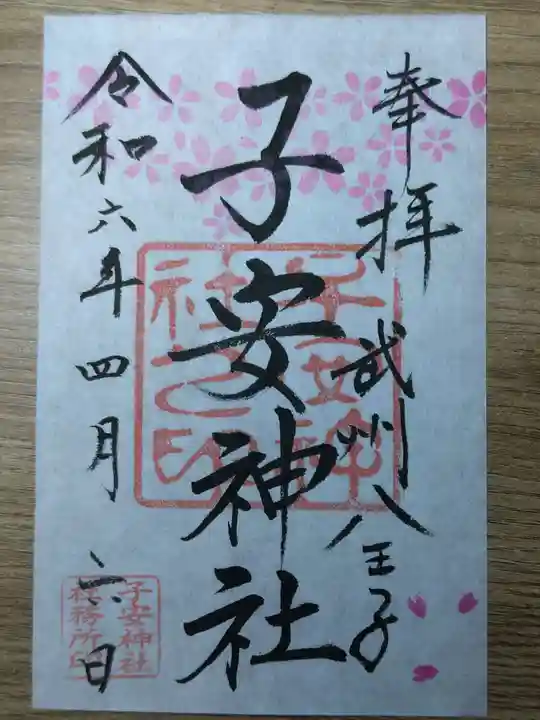 奉拝
武州八王子
子安神社
子安神社之印
令和六年四月六日
子安神社
社務所印